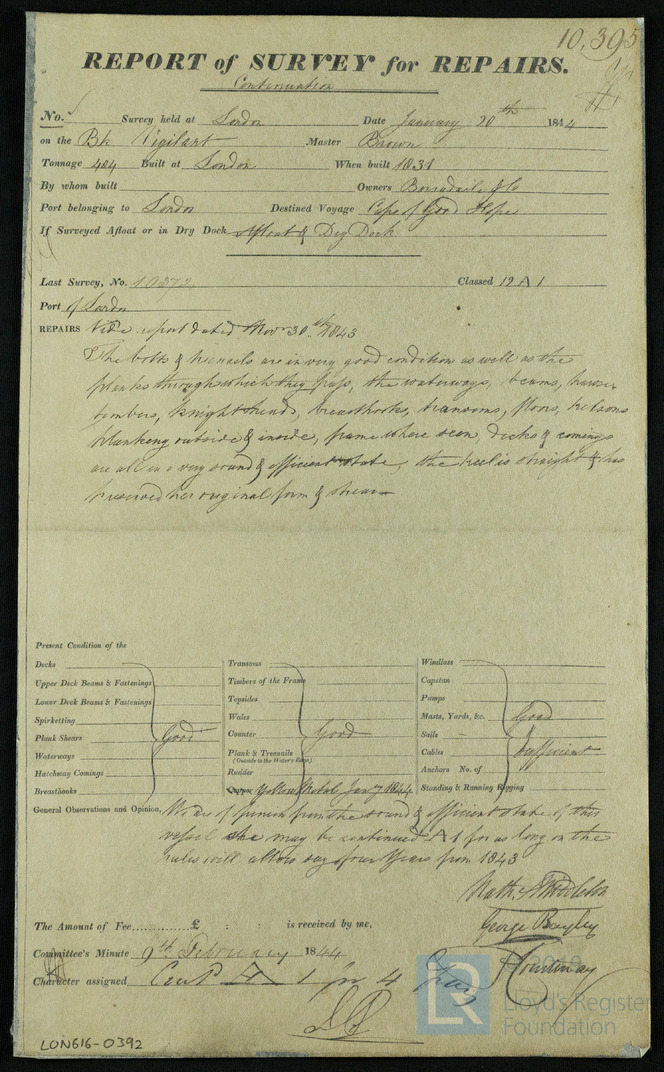 10,395
REPORT of SURVEY for REPAIRS.
Continuation
No. Survey held at London Date January 20th 1844
on the Bk Vigilant Master Brown
Tonnage 404 Built at London When built 1831
By whom built Owners & Co
Port belonging to London Destined Voyage Cape of Good Hope
If Surveyed Afloat or in Dry Dock Afloat & Dry Dock
Last Survey, No. 10272 Classed 12 A 1
Port of London
REPAIRS Vide report dated Novr 30th 1843
The bolts & treenails are in very good condition as well as the
planks through which they pass, the waterways, beams, hawse
timbers, knightheads, breasthooks, transoms, floors, kelsons
planking outside & inside, frame where seen, decks & comings
are all in a very sound & efficient state, the keel is straight & has
preserved her original form & shear
Present Condition of the
Decks
Upper Deck Beams & Fastenings
Lower Deck Beams & Fastenings
Spirketting
Plank Shears Good
Waterways
Hatchway Comings
Breasthooks
Transoms
Timbers of the Frame
Topsides
Wales
Counter Good
Plank & Treenails
(Outside to the Water's Edge)
Rudder
Copper Yellow Metal Jany 1844
Windlass
Capstan
Pumps
Masts, Yards, &c. Good
Sails
Cables Sufficient
Anchors No. of
Standing & Running Rigging
General Observations and Opinion, We are of opinion from the sound & efficient state of this
vessel she may be continued A 1 for as long as the
rules will allow say four Years from 1843
Nathl Middleton
George Bayley
Courtenay
The Amount of Fee £ : : is received by me,
Committee's Minute 9th February 1844
Character assigned Cont A 1 for 4 Years
© 2019
LR
Lloyd's Register
Foundation
LON616-0392